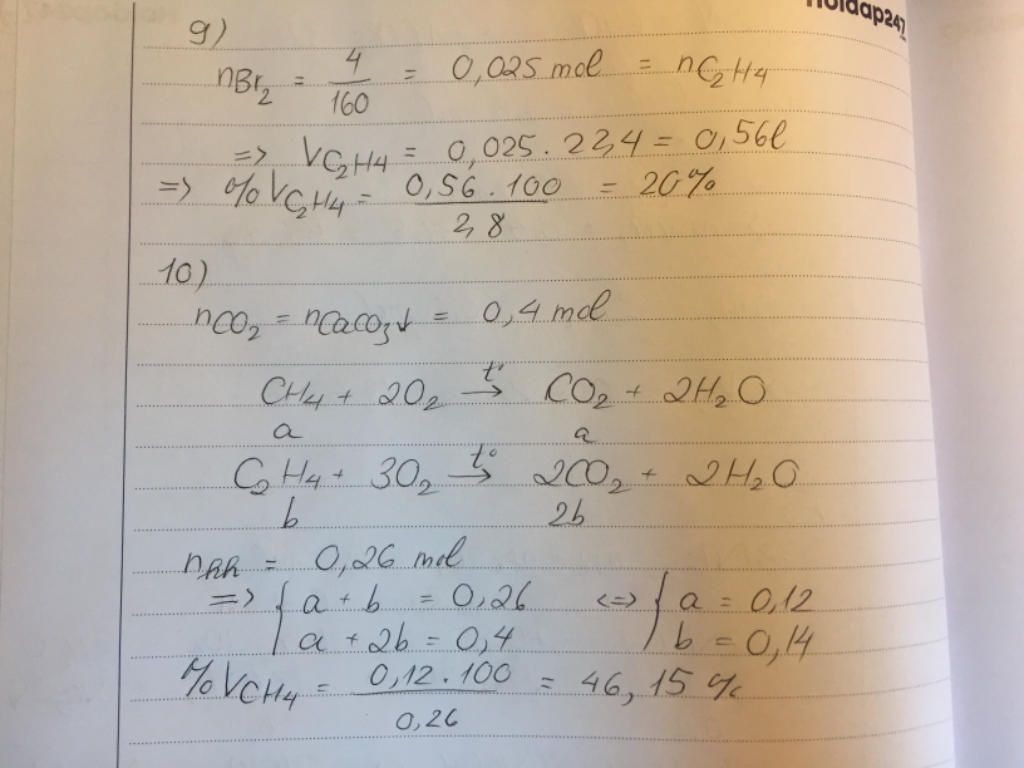 Hoidap247
9)
nBr2 = 4/160 = 0,025 mol = nC2H4
=> VC2H4 = 0,025 . 22,4 = 0,56l
=> %VC2H4 = 0,56 . 100/2,8 = 20%
10)
nCO2 = nCaCO3↓ = 0,4 mol
CH4 + 2O2 →t° CO2 + 2H2O
a a
C2H4 + 3O2 →t° 2CO2 + 2H2O
b 2b
nhh = 0,26 mol
=> { a + b = 0,26 <=> { a = 0,12
a + 2b = 0,4 b = 0,14
%VCH4 = 0,12 . 100/0,26 = 46,15 %